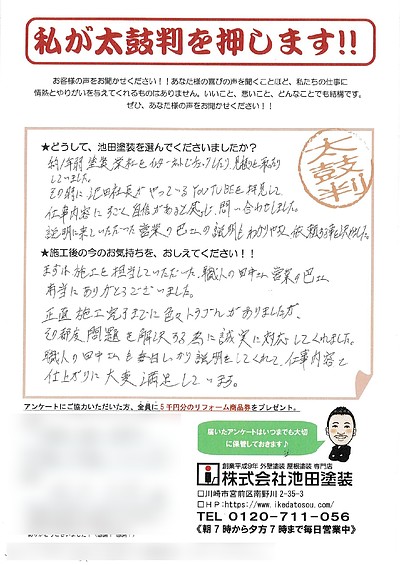 私が太鼓判を押します!!
お客様の声をお聞かせください！！あなた様の喜びの声を聞くことほど、私たちの仕事に
情熱とやりがいを与えてくれるものはありません。いいこと、悪いこと、どんなことでも結構です。
ぜひ、あなた様の声をお聞かせください！！
★どうして、池田塗装を選んでくださいましたか？
太鼓判
約1年前 塗装会社をインターネットでチェックしたり、見積りを取ったり
していました。
その時に池田社長がやっているYOUTUBEを拝見して
仕事内容にすごく自信があると感じ、問い合わせしました。
説明に来ていただいた営業の巴さんの説明もわかりやすく、依頼する事を決めました。
★施工後の今のお気持ちを、おしえてください！！
まずは施工を担当していただいた、職人の田中さん 営業の巴さん
本当にありがとうございました。
正直 施工完了までに色々トラブルがありましたが、
その都度 問題を解決する為に誠実に対応してくれました。
職人の田中さんも毎日しっかり説明をしてくれて、仕事内容と
仕上がりに大変満足しています。
アンケートにご協力いただいた方、全員に5千円分のリフォーム商品券をプレゼント。
届いたアンケートはいつまでも大切
に保管しておきます♪
創業平成9年 外壁塗装 屋根塗装 専門店
株式会社池田塗装
□川崎市宮前区南野川2-35-3
□HP:https://www.ikedatosou.com/
TEL 0120-711-056
《朝7時から夕方7時まで毎日営業中》